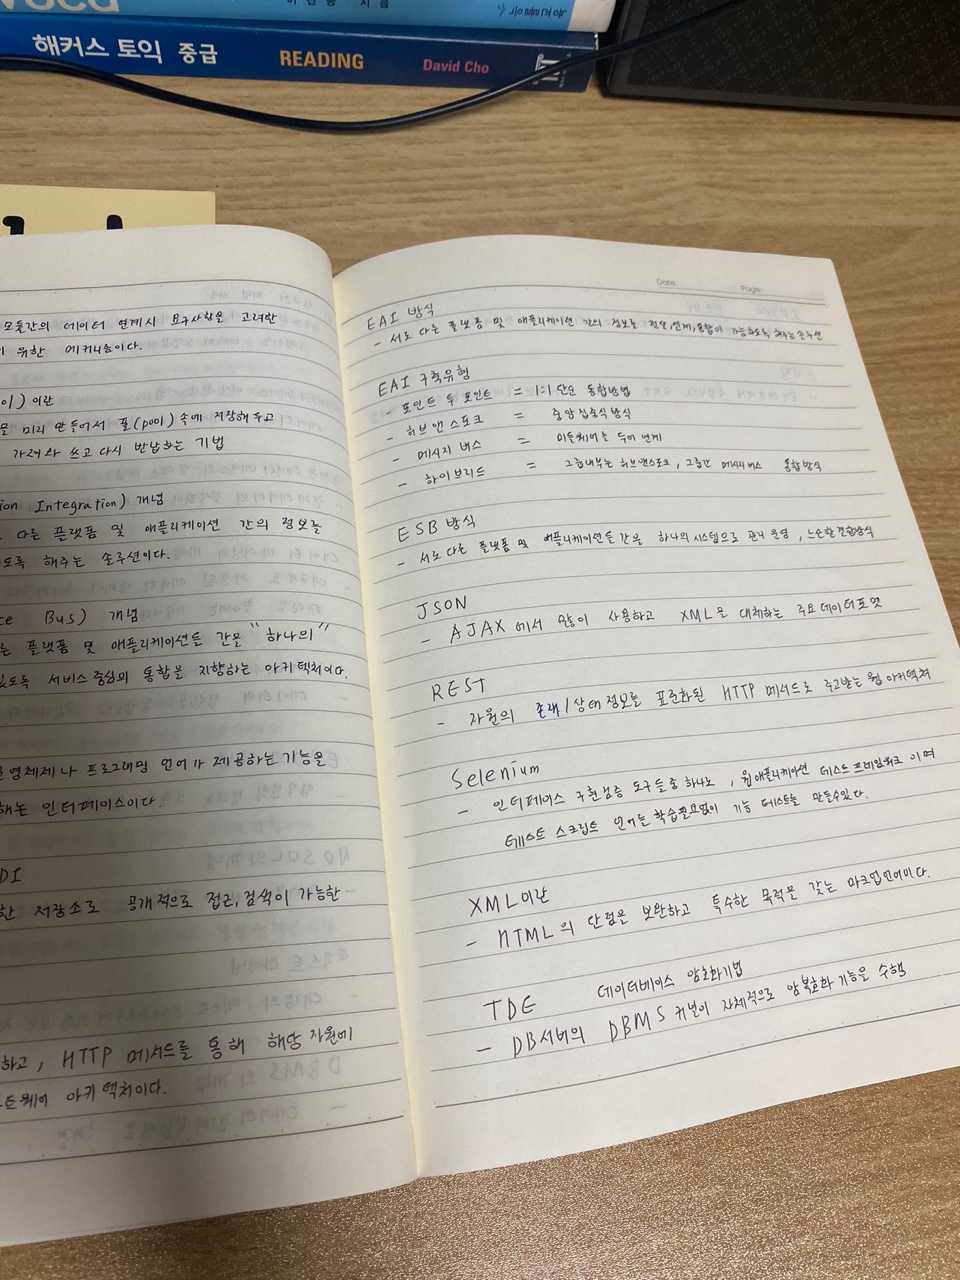 해커스 토익 중급 READING David Cho
모듈간의 데이터 연계시 요구사항을 고려한
위한 메커니즘이다.
이란
미리 만들어서 풀(pool) 속에 저장해 두고
가져와 쓰고 다시 반납하는 기법
ion Integration) 개념
다른 플랫폼 및 애플리케이션 간의 정보를
도록 해주는 솔루션이다.
ce Bus) 개념
는 플랫폼 및 애플리케이션들 간을 "하나의"
있도록 서비스 중심의 통합을 지향하는 아키텍처이다.
운영체제나 프로그래밍 언어가 제공하는 기능을
해논 인터페이스이다
DDI
한 저장소로 공개적으로 접근, 검색이 가능한
하고, HTTP 메서드를 통해 해당 자원에
트웨어 아키텍처이다.
Date Page
EAI 방식
- 서로 다른 플랫폼 및 애플리케이션 간의 정보를 전달, 연계, 통합이 가능하도록 해주는 솔루션
EAI 구축유형
- 포인트 투 포인트 = 1:1 단순 통합방법
- 허브 앤 스포크 = 중앙 집중식 방식
- 메시지 버스 = 미들웨어를 두어 연계
- 하이브리드 = 그룹내부는 허브앤스포크, 그룹간 메시지버스 통합방식
ESB 방식
- 서로 다른 플랫폼 및 애플리케이션들 간을 하나의 시스템으로 관리 운영, 느슨한 결합방식
JSON
- AJAX에서 많이 사용하고 XML을 대체하는 주요 데이터 포맷
REST
- 자원의 존재/상태 정보를 표준화된 HTTP 메서드로 주고받는 웹 아키텍처
Selenium
- 인터페이스 구현검증 도구들중 하나로, 웹애플리케이션 테스트 프레임워크 이며
테스트 스크립트 언어를 학습필요없이 기능 테스트를 만들수있다.
XML이란
- HTML의 단점을 보완하고 특수한 목적을 갖는 마크업언어이다.
TDE 데이터베이스 암호화기법
- DB서버의 DBMS 커널이 자체적으로 암복호화 기능을 수행